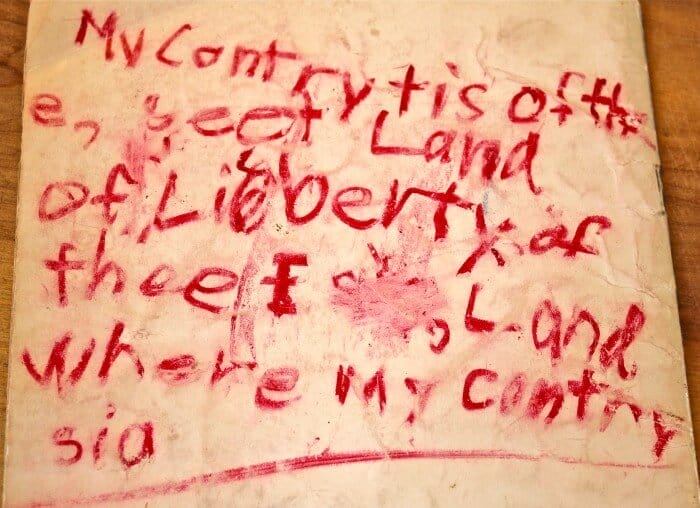 My Contry tis of th
e, seet Land
of Libberty of
thee I , Land
Where My contry
sia